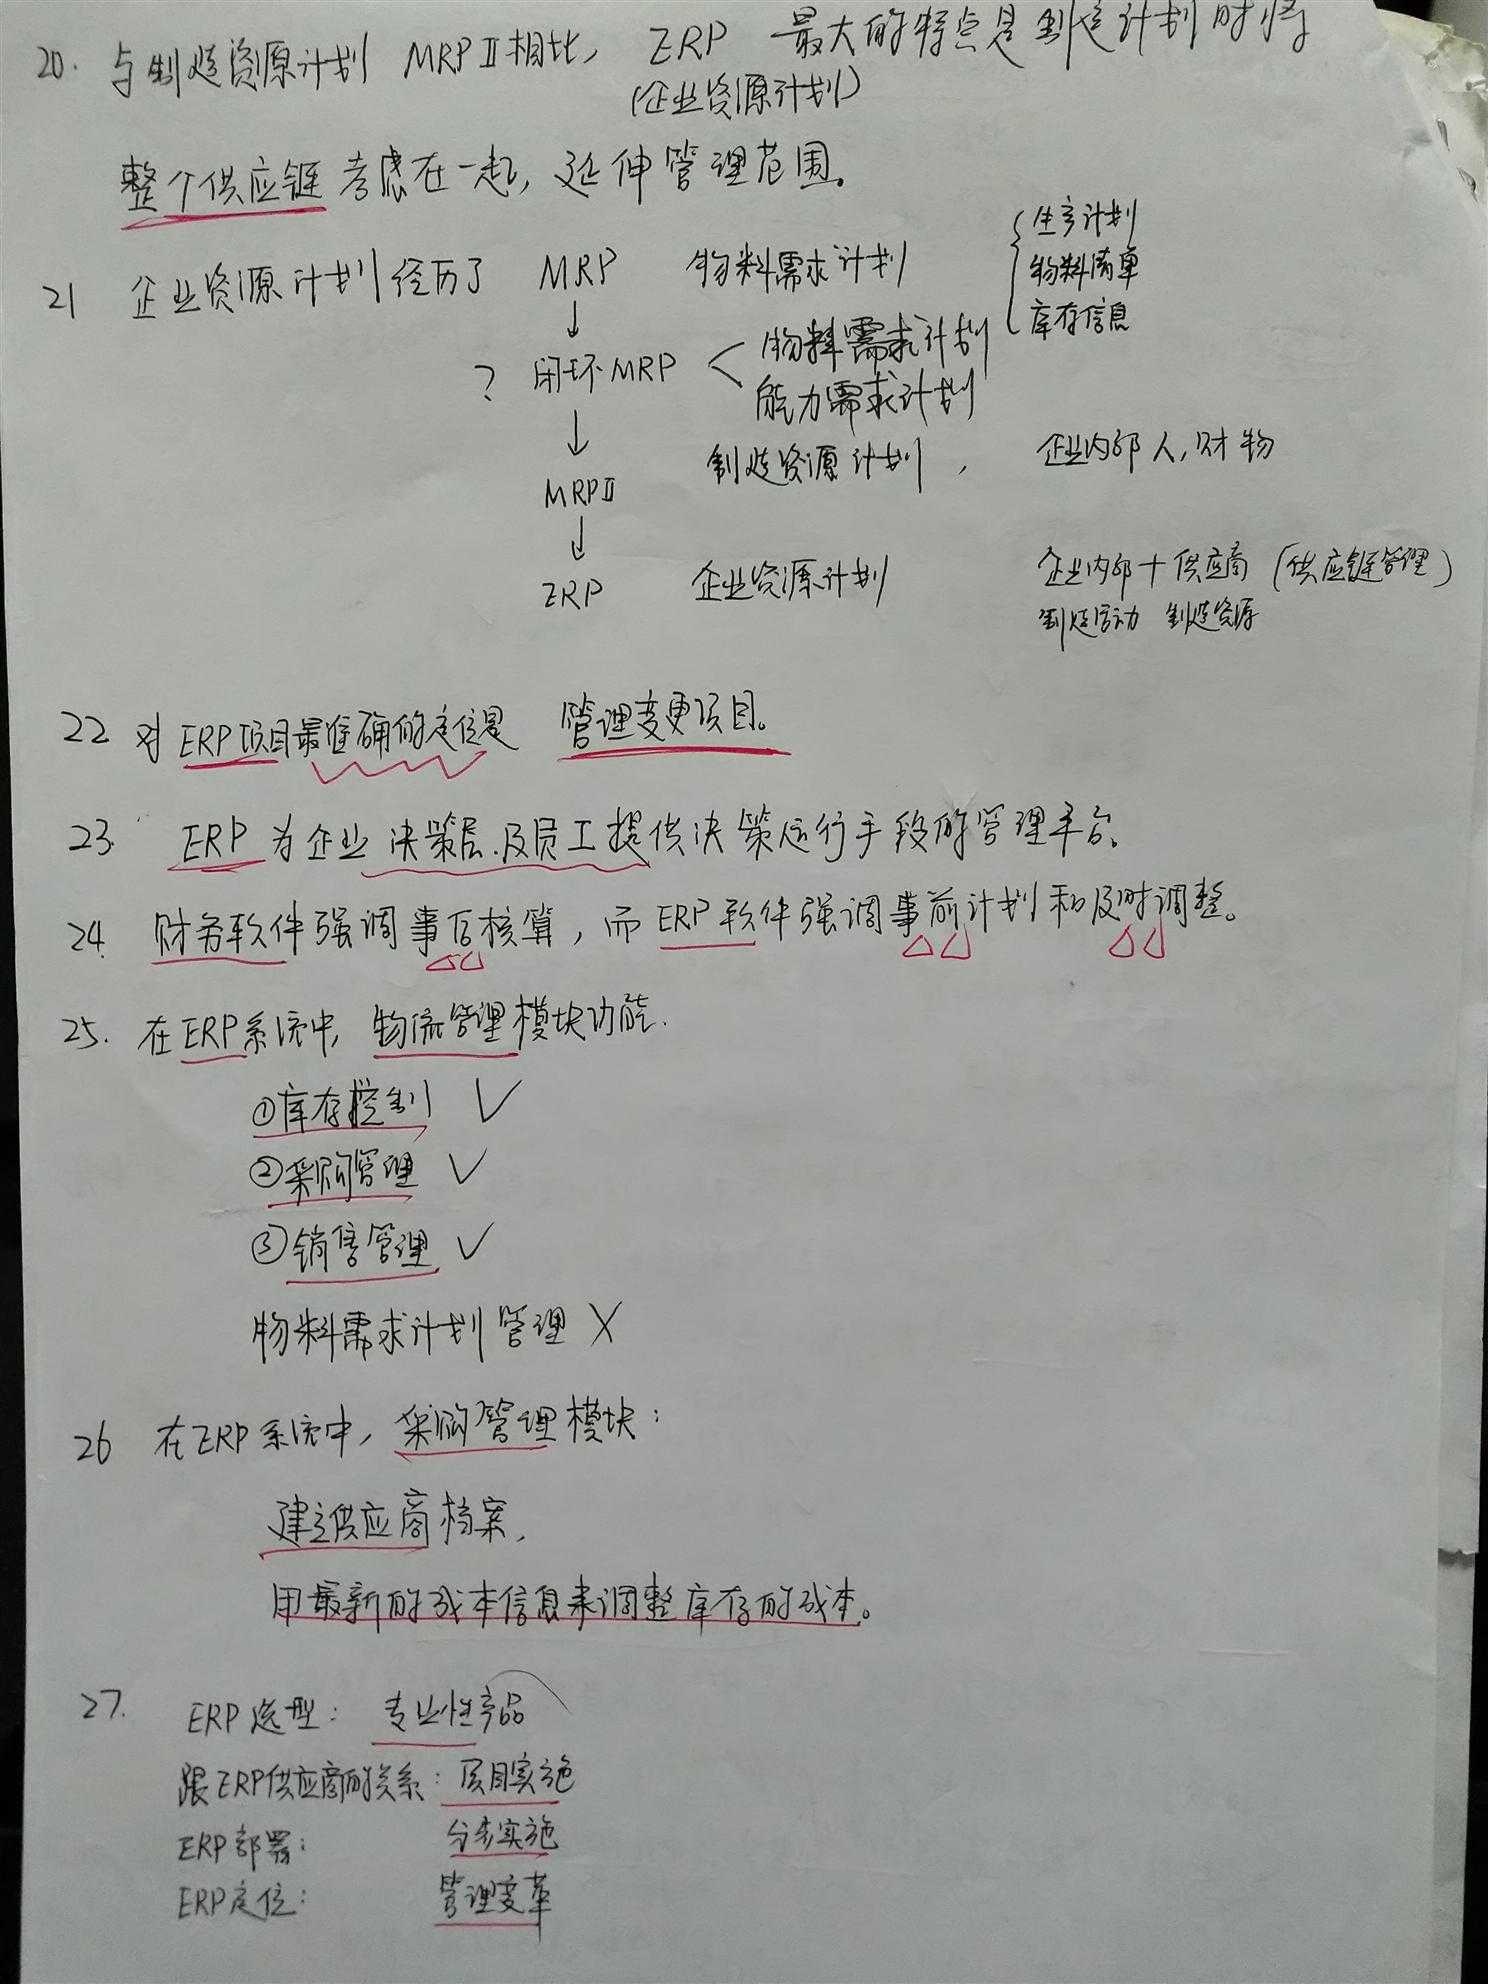 20. 与制造资源计划 MRPⅡ相比， ERP 最大的特点是制定计划时将
(企业资源计划)
整个供应链考虑在一起，延伸管理范围。
21 企业资源计划经历了 MRP 物料需求计划 { 生产计划
物料清单
库存信息
↓
? 闭环MRP < 物料需求计划
能力需求计划
↓
MRPⅡ 制造资源计划， 企业内部人，财物
↓
ERP 企业资源计划 企业内部＋供应商（供应链管理）
制造活动 制造资源
22 对ERP项目最准确的定位是 管理变更项目。
23. ERP为企业决策层.及员工提供决策运行手段的管理平台。
24. 财务软件强调事后核算，而ERP软件强调事前计划和及时调整。
25. 在ERP系统中，物流管理模块功能.
①库存控制 ✓
②采购管理 ✓
③销售管理 ✓
物料需求计划管理 ×
26 在ERP系统中，采购管理模块：
建立供应商档案，
用最新的成本信息来调整库存的成本。
27. ERP选型： 专业性产品
跟ERP供应商的关系：项目实施
ERP部署： 分步实施
ERP定位： 管理变革